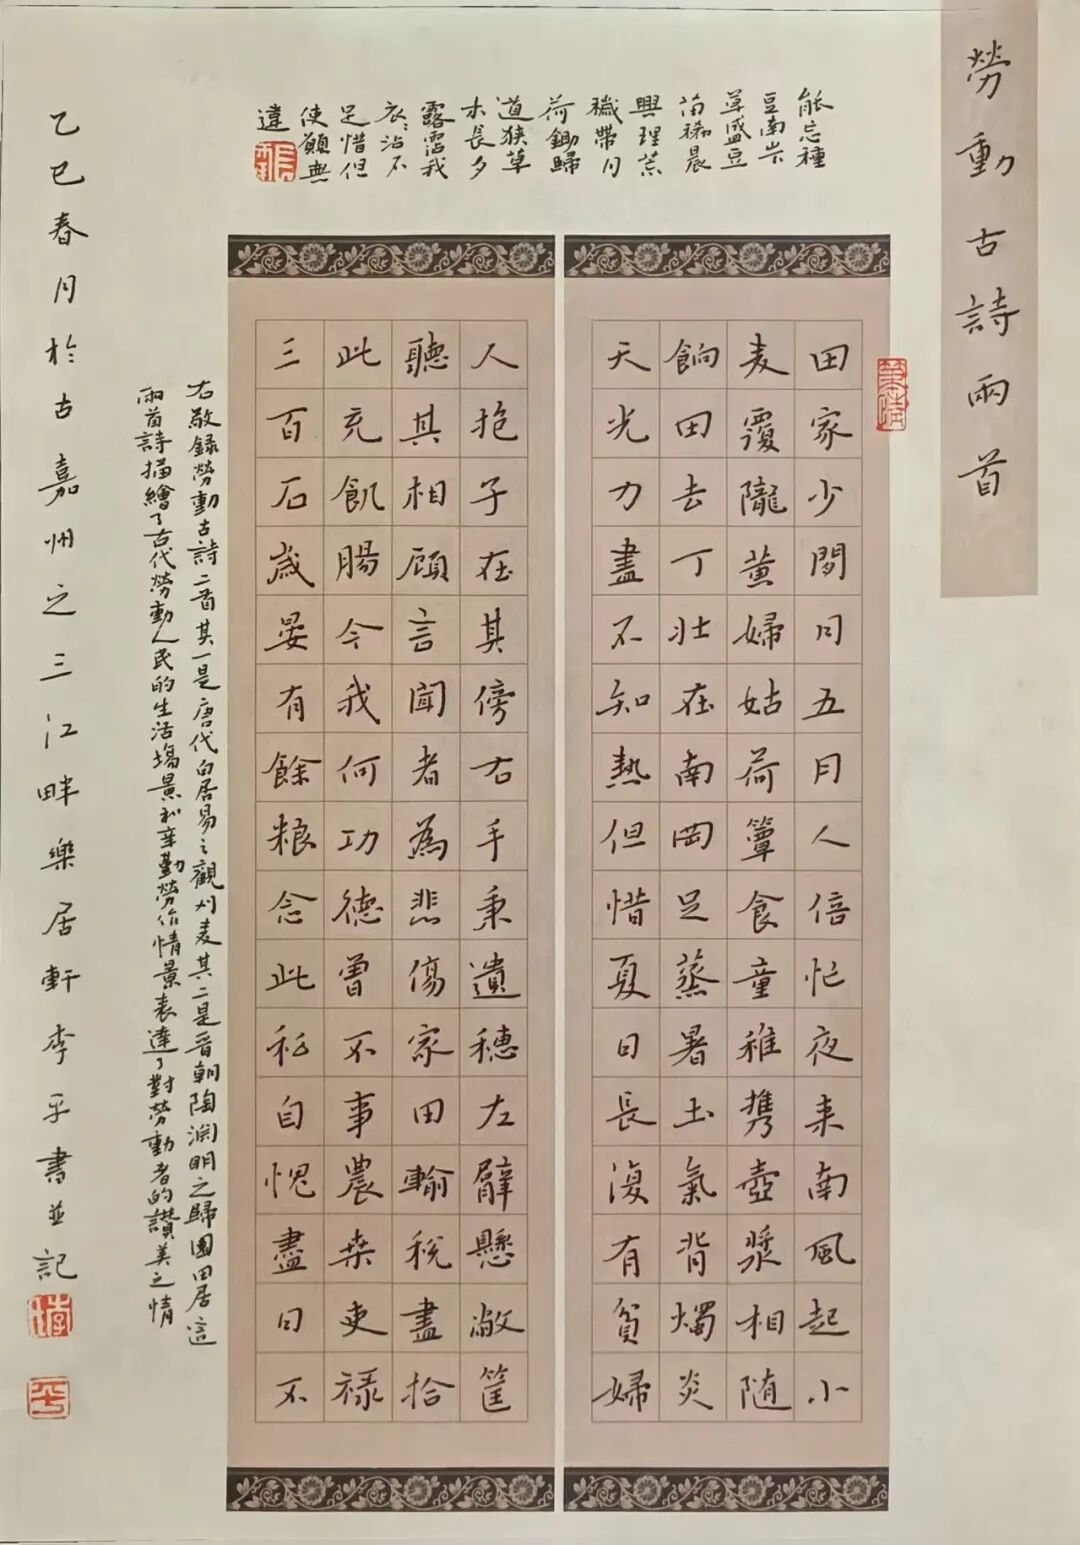 勞動古詩兩首
田家少閒月五月人倍忙夜来南風起小
麦覆隴黄婦姑荷簞食童稚携壺漿相随
餉田去丁壮在南岡足蒸暑土氣背燭炎
天光力盡不知熱但惜夏日長復有貧婦
人抱子在其傍右手秉遺穗左臂懸敝筐
聽其相顧言聞者為悲傷家田輸税盡拾
此充飢腸今我何功德曾不事農桑吏禄
三百石歲晏有餘粮念此私自愧盡日不
能忘種
豆南山下
草盛豆
苗稀晨
興理荒
穢帶月
荷鋤歸
道狹草
木長夕
露霑我
衣〻沾不
足惜但
使願無
違
右敬録勞動古詩二首其一是唐代白居易之觀刈麦其二是晋朝陶渊明之歸園田居這
兩首詩描繪了古代勞動人民的生活場景和辛勤勞作情景表達了對勞動者的讚美之情
乙巳春月於古嘉州之三江畔樂居軒李平書並記
李
平